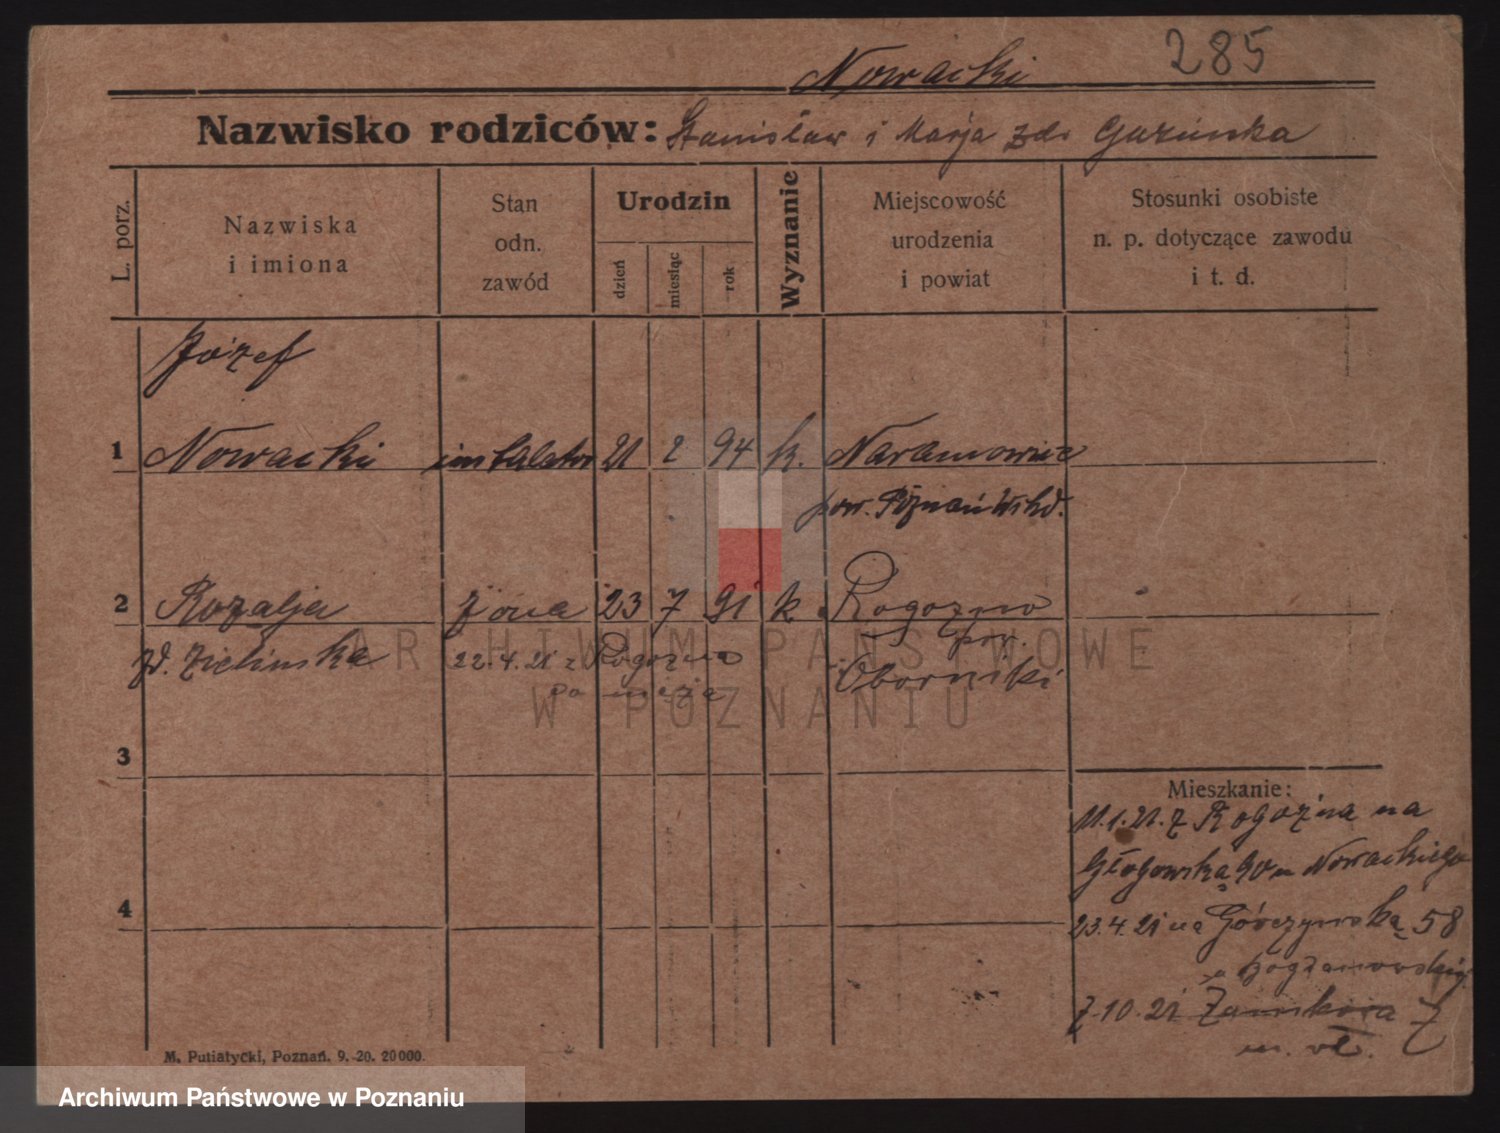 285
Nowacki
Nazwisko rodziców: Stanisław i Marja zd.
L. porz.
Nazwiska
i imiona
Stan
odn.
zawód
Urodzin
dzień
miesiąc
rok
Wyznanie
Miejscowość
urodzenia
i powiat
Stosunki osobiste
n. p. dotyczące zawodu
i t. d.
Józef
1 Nowacki instalator 21 2 94 k. Naramowice
pow. Poznań Wschd.
2 Rozalja żona 23 7 91 k. Rogoźno
pow.
zd. Zielinska 22.4.21 z Rogoźna Oborniki
do męża
3
Mieszkanie:
11.1.21. z Rogoźna na
Głogowską 90 u Nowackiego
4
23.4.21 na Górczyńską 58
u
7.10.21 Zamkowa 7
M. Putiatycki, Poznań. 9. 20. 20000.
ARCHIWUM PAŃSTWOWE
W POZNANIU
Archiwum Państwowe w Poznaniu